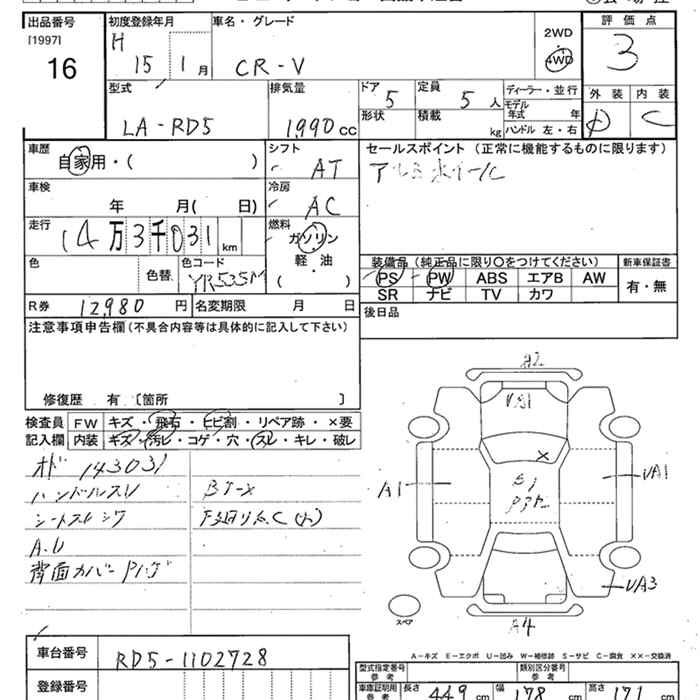 出品番号
[1997]
16
初度登録年月
H
15 1 月
車名・グレード
CR-V
2WD
4WD
評価点
3
型式
LA-RD5
排気量
1990 cc
ドア
5
形状
定員
5 人
積載
kg
ディーラー・並行
モデル
年式 年
ハンドル 左・右
外装
D
内装
C
車歴
自家用・( )
シフト
AT
セールスポイント (正常に機能するものに限ります)
アルミホイール
車検
年 月( 日)
冷房
AC
走行
14万3千031 km
燃料
ガソリン
軽・油
( )
色
色替
色コード
YR535M
装備品 (純正品に限り○をつけてください)
PS PW ABS エアB AW
SR ナビ TV カワ
新車保証書
有・無
R券 12,980 円
名変期限 月 日
後日品
注意事項申告欄 (不具合内容等は具体的に記入して下さい)
修復歴 有 [箇所 ]
検査員
記入欄
FW キズ・飛石・ヒビ割・リペア跡・×要
内装 キズ・汚レ・コゲ・穴・スレ・キレ・破レ
オド 143031
ハンドルスレ
シートスレシワ
A.U
背面カバー
A2
A1
UA1
UA3
A4
スペア
A-キズ E-エクボ U-凹み W-補修跡 S-サビ C-腐食 ××-交換済
車台番号
RD5-1102728
登録番号
型式指定番号
参考
類別区分番号
参考
車庫証明用
参考
長さ 449 cm
幅 178 cm
高さ 171 cm